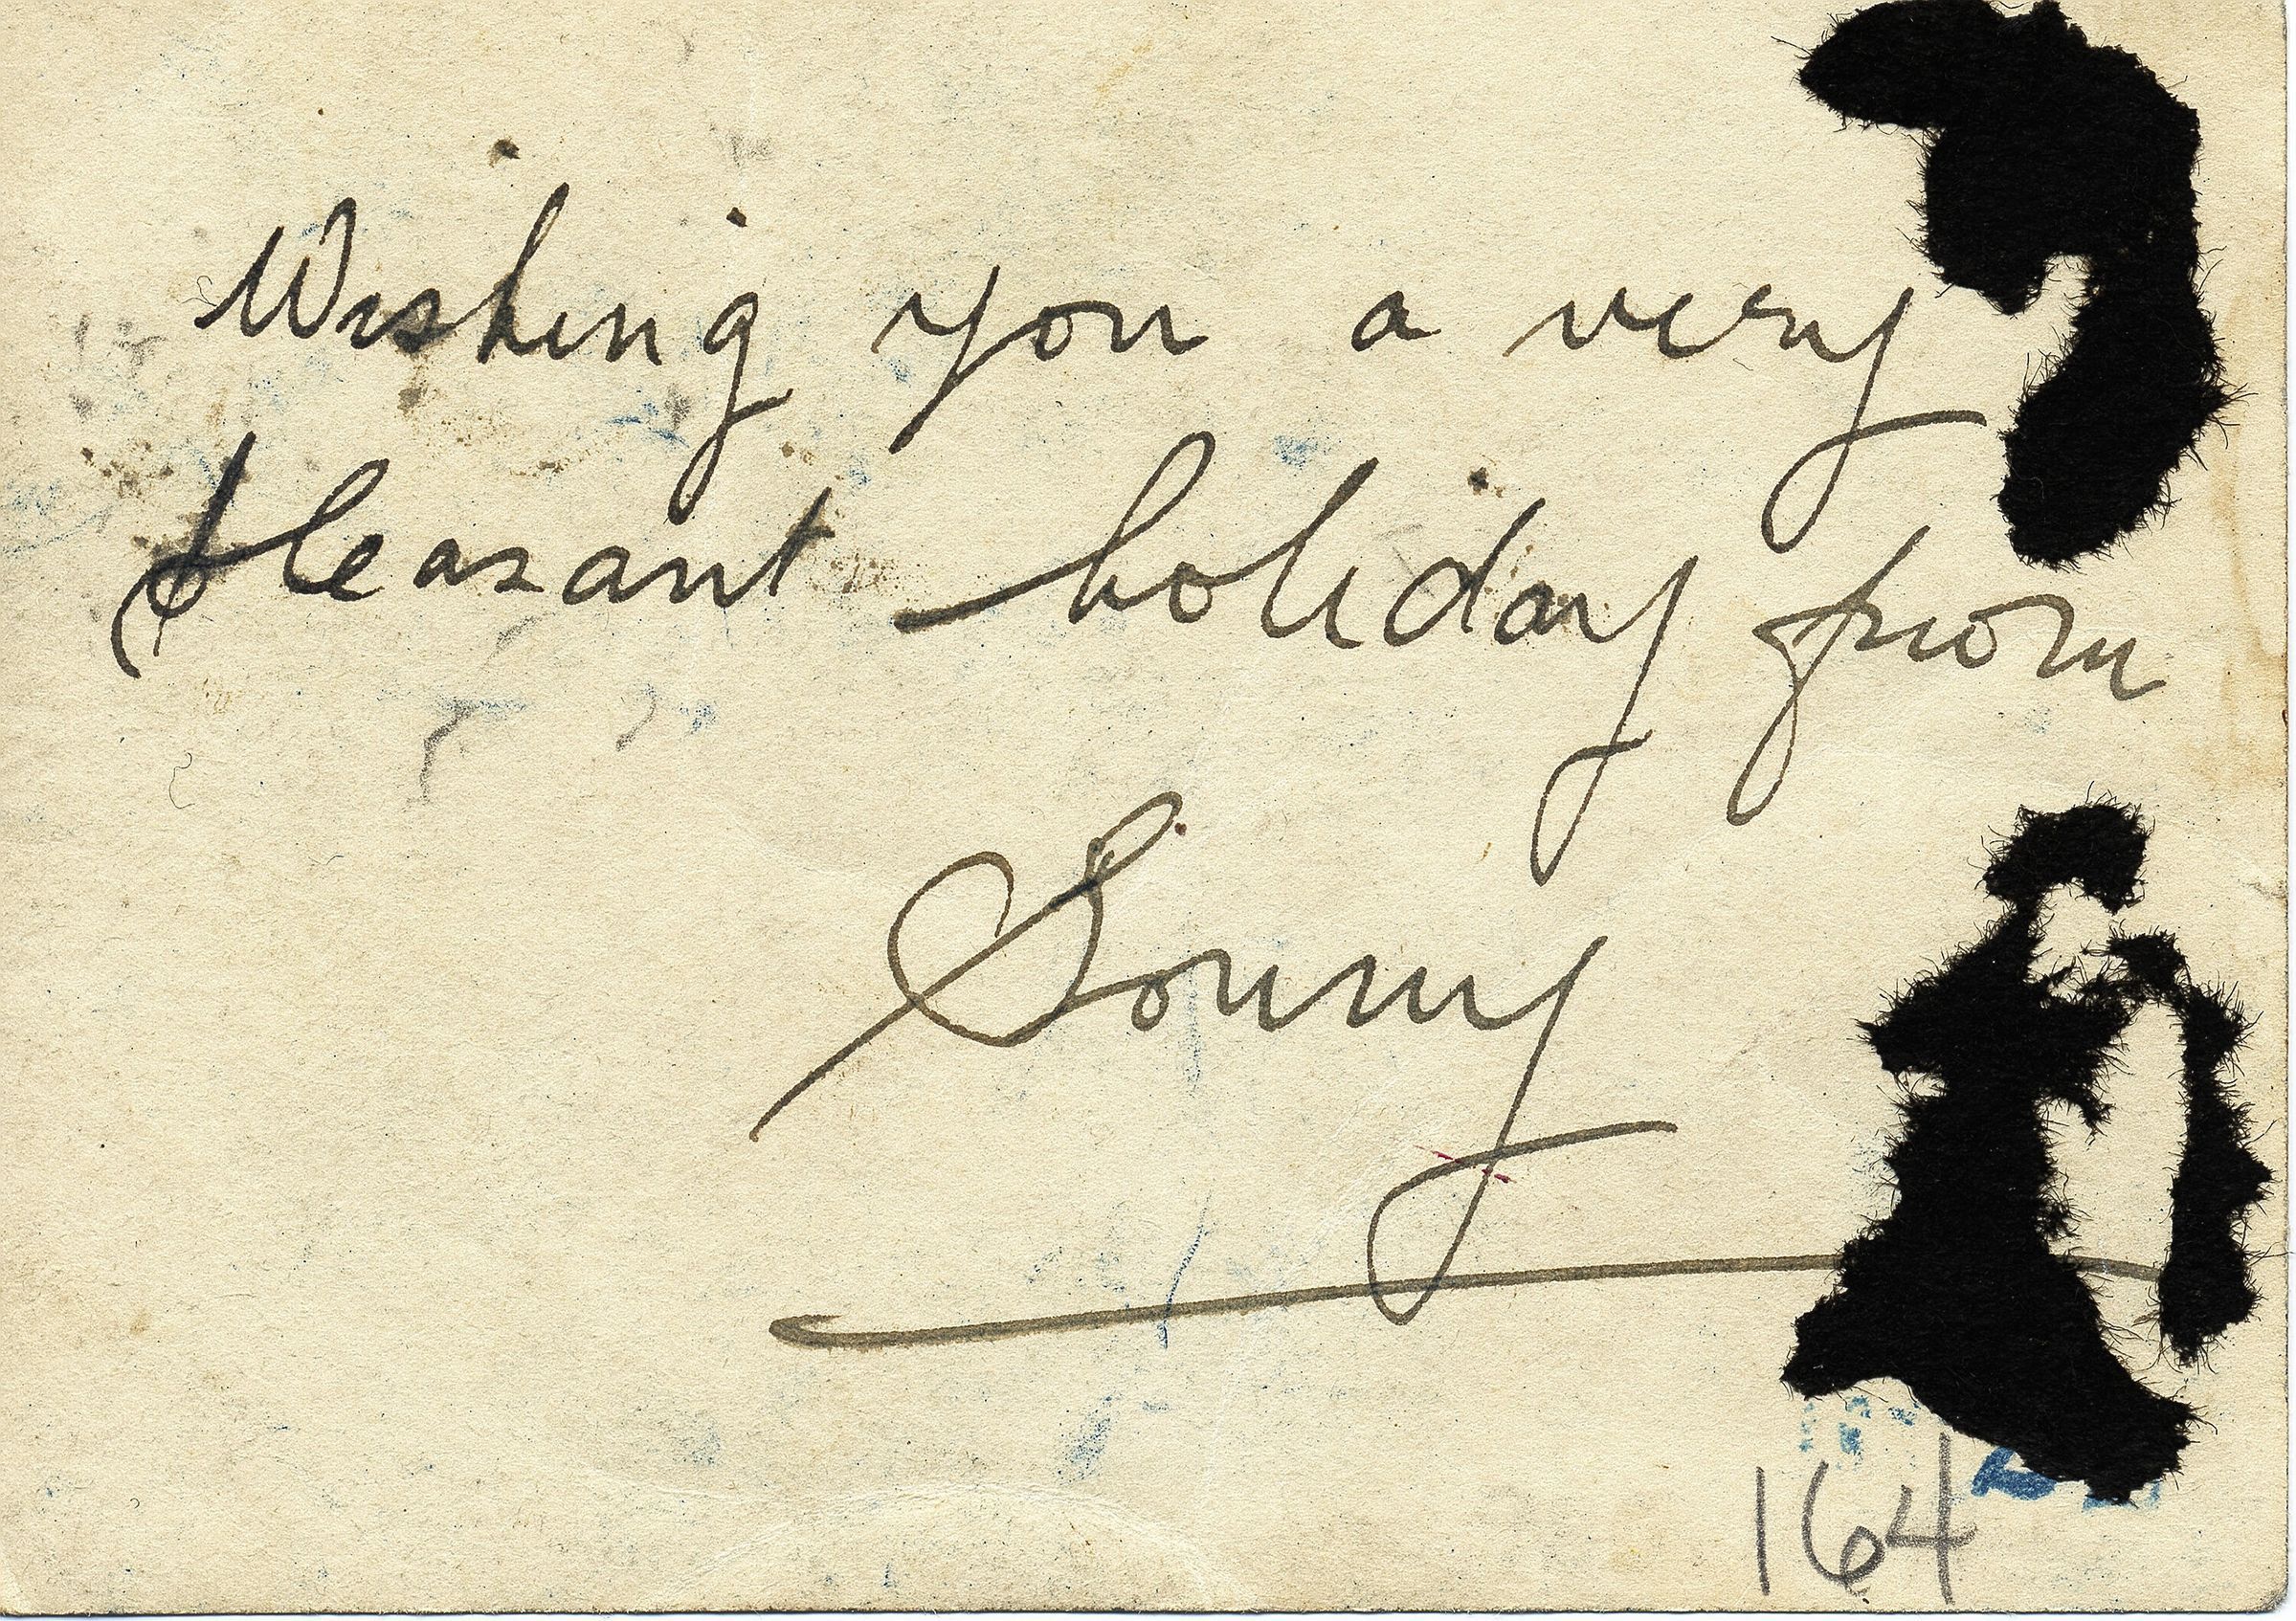 Wishing you a very
pleasant holiday from
Sonny
164